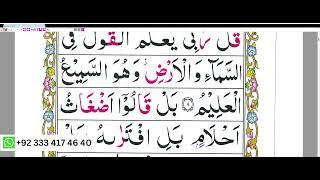 قٰلَ رَبِّیْ یَعْلَمُ الْقَوْلَ فِی
السَّمَآءِ وَالْاَرْضِ ۫ وَهُوَ السَّمِیْعُ
الْعَلِیْمُ ۝ بَلْ قَالُوْۤا اَضْغَاثُ
اَحْلَامٍۭ بَلِ افْتَرٰىهُ بَلْ
+92 333 417 46 40